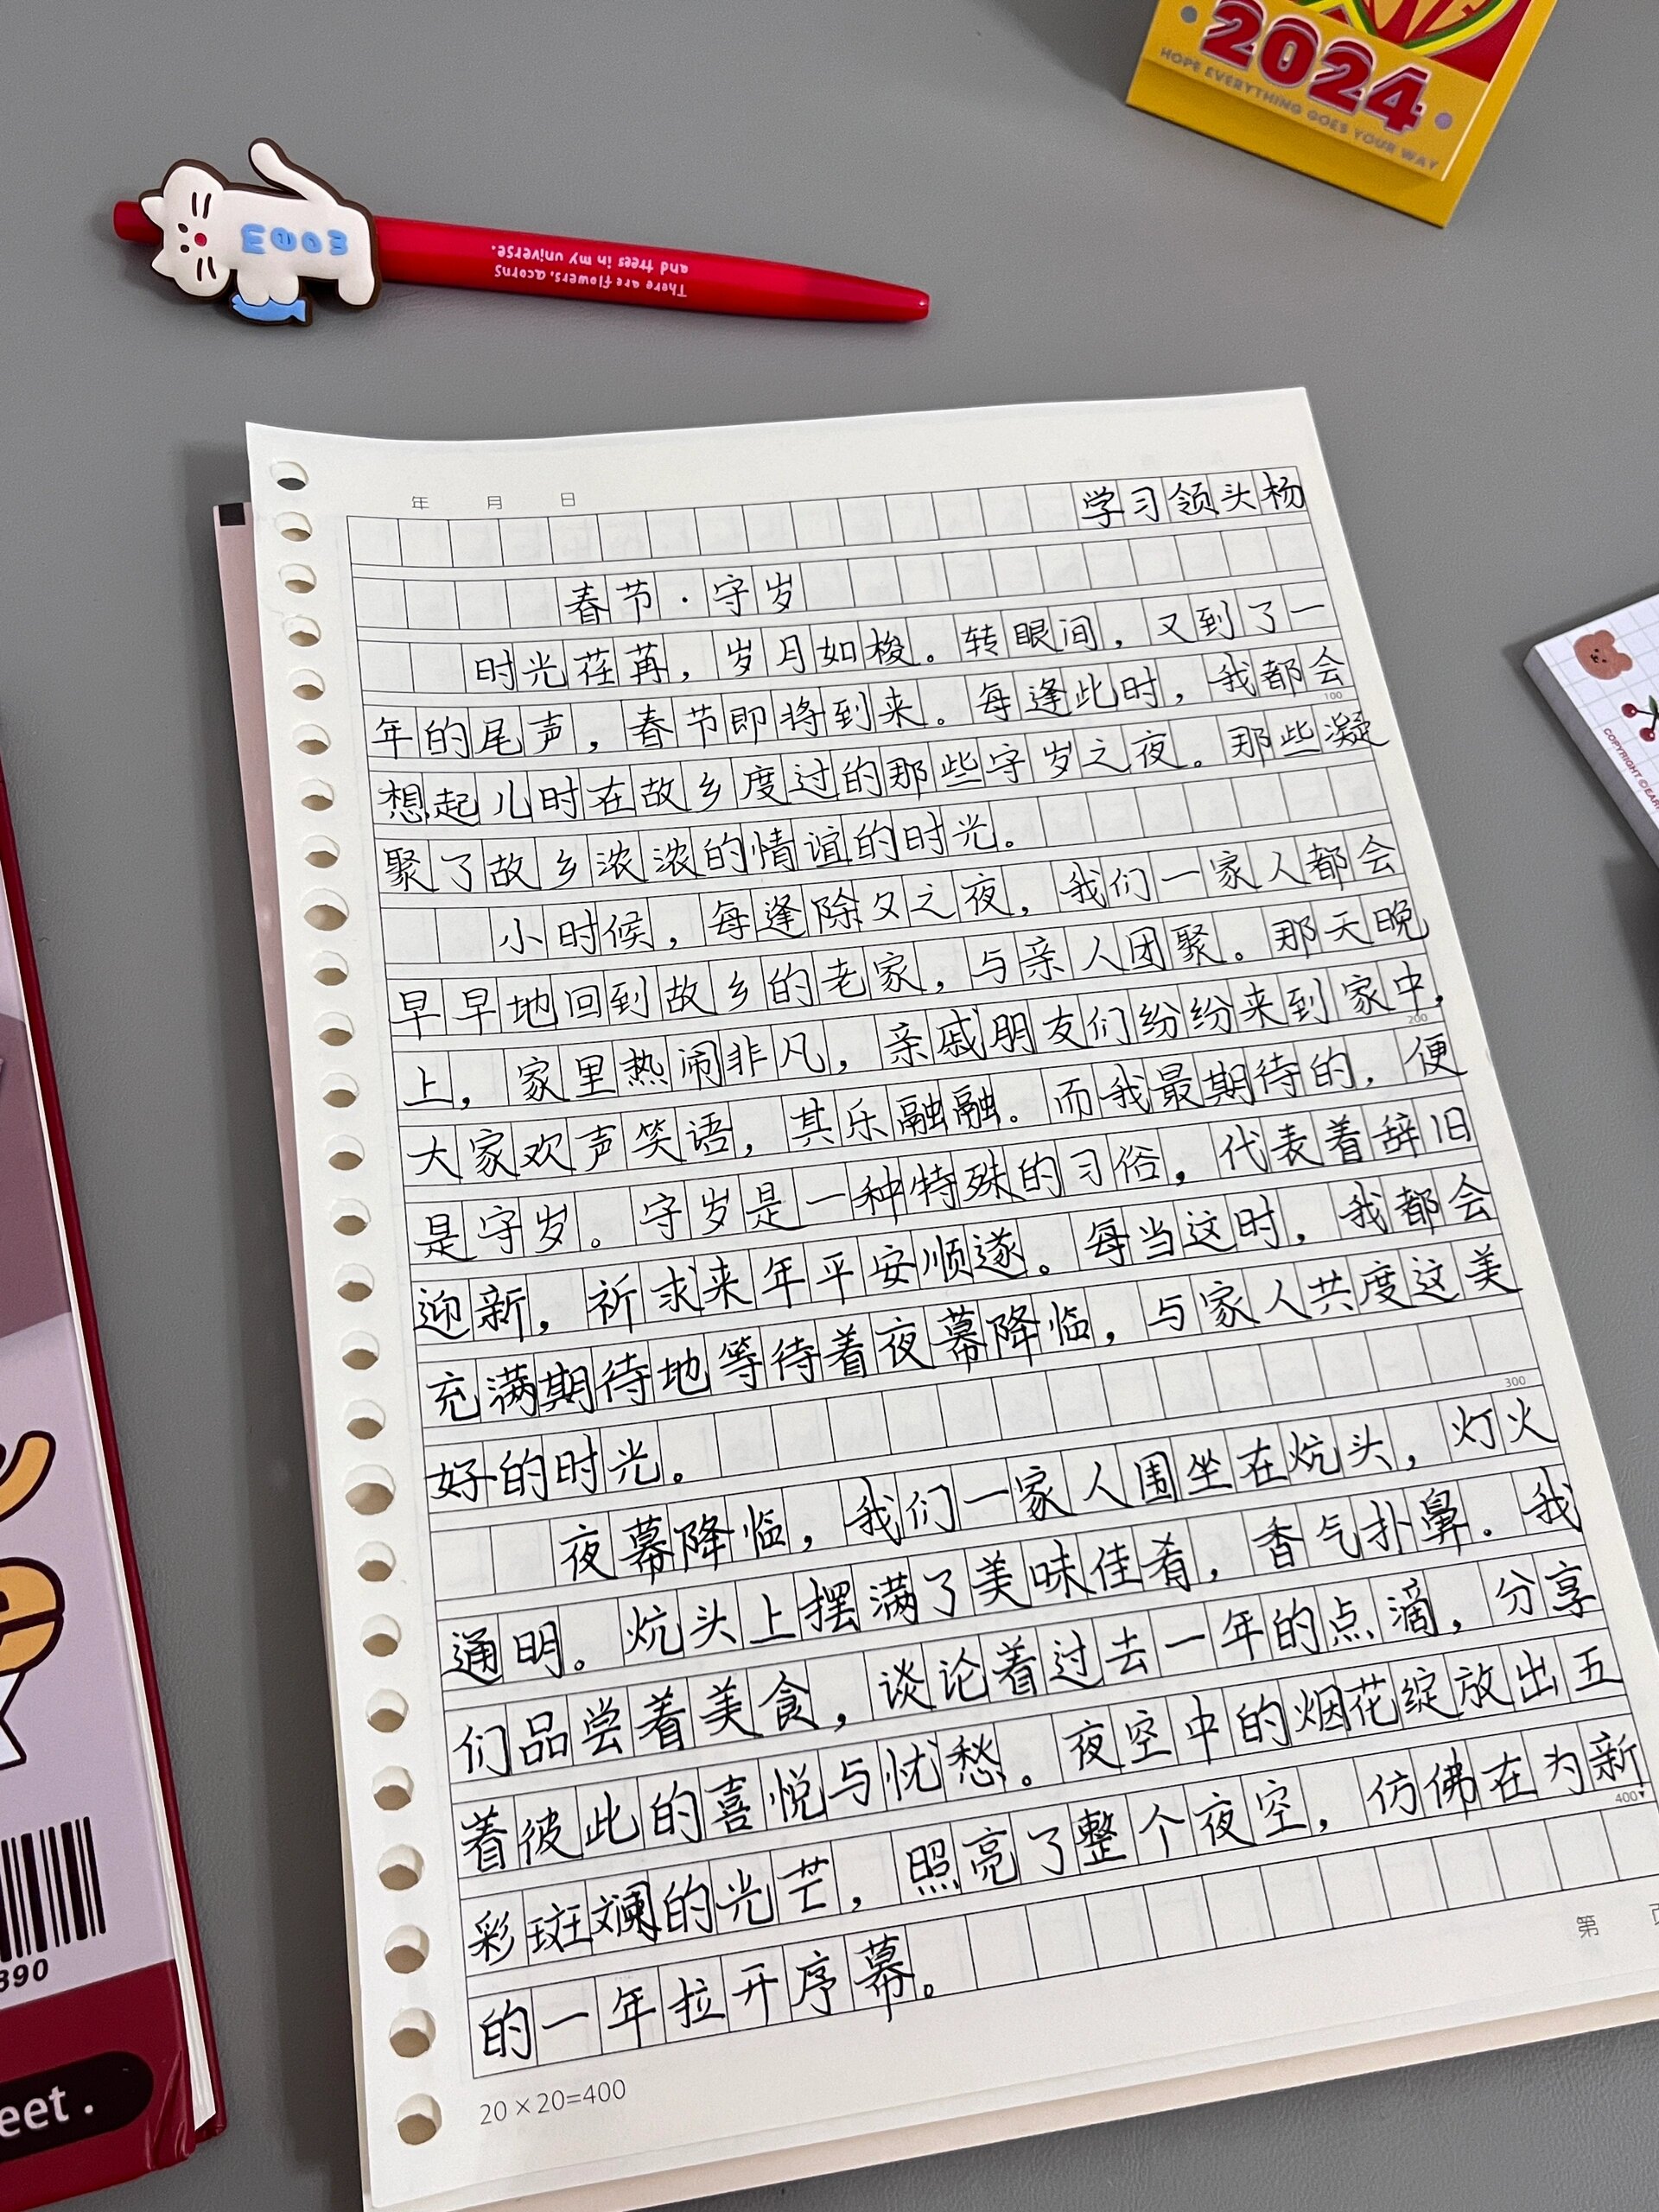 2024
HOPE EVERYTHING GOES YOUR WAY
MEOW
There are flowers, acorns
and trees in my universe.
年 月 日
学习领头杨
春节·守岁
时光荏苒，岁月如梭。转眼间，又到了一
年的尾声，春节即将到来。每逢此时，我都会
100
想起儿时在故乡度过的那些守岁之夜。那些凝
聚了故乡浓浓的情谊的时光。
小时候，每逢除夕之夜，我们一家人都会
早早地回到故乡的老家，与亲人团聚。那天晚
上，家里热闹非凡，亲戚朋友们纷纷来到家中，
200
大家欢声笑语，其乐融融。而我最期待的，便
是守岁。守岁是一种特殊的习俗，代表着辞旧
迎新，祈求来年平安顺遂。每当这时，我都会
充满期待地等待着夜幕降临，与家人共度这美
好的时光。
300
夜幕降临，我们一家人围坐在炕头，灯火
通明。炕头上摆满了美味佳肴，香气扑鼻。我
们品尝着美食，谈论着过去一年的点滴，分享
着彼此的喜悦与忧愁。夜空中的烟花绽放出五
彩斑斓的光芒，照亮了整个夜空，仿佛在为新
400
的一年拉开序幕。
第 页
20×20=400
COPYRIGHT
390
eet.